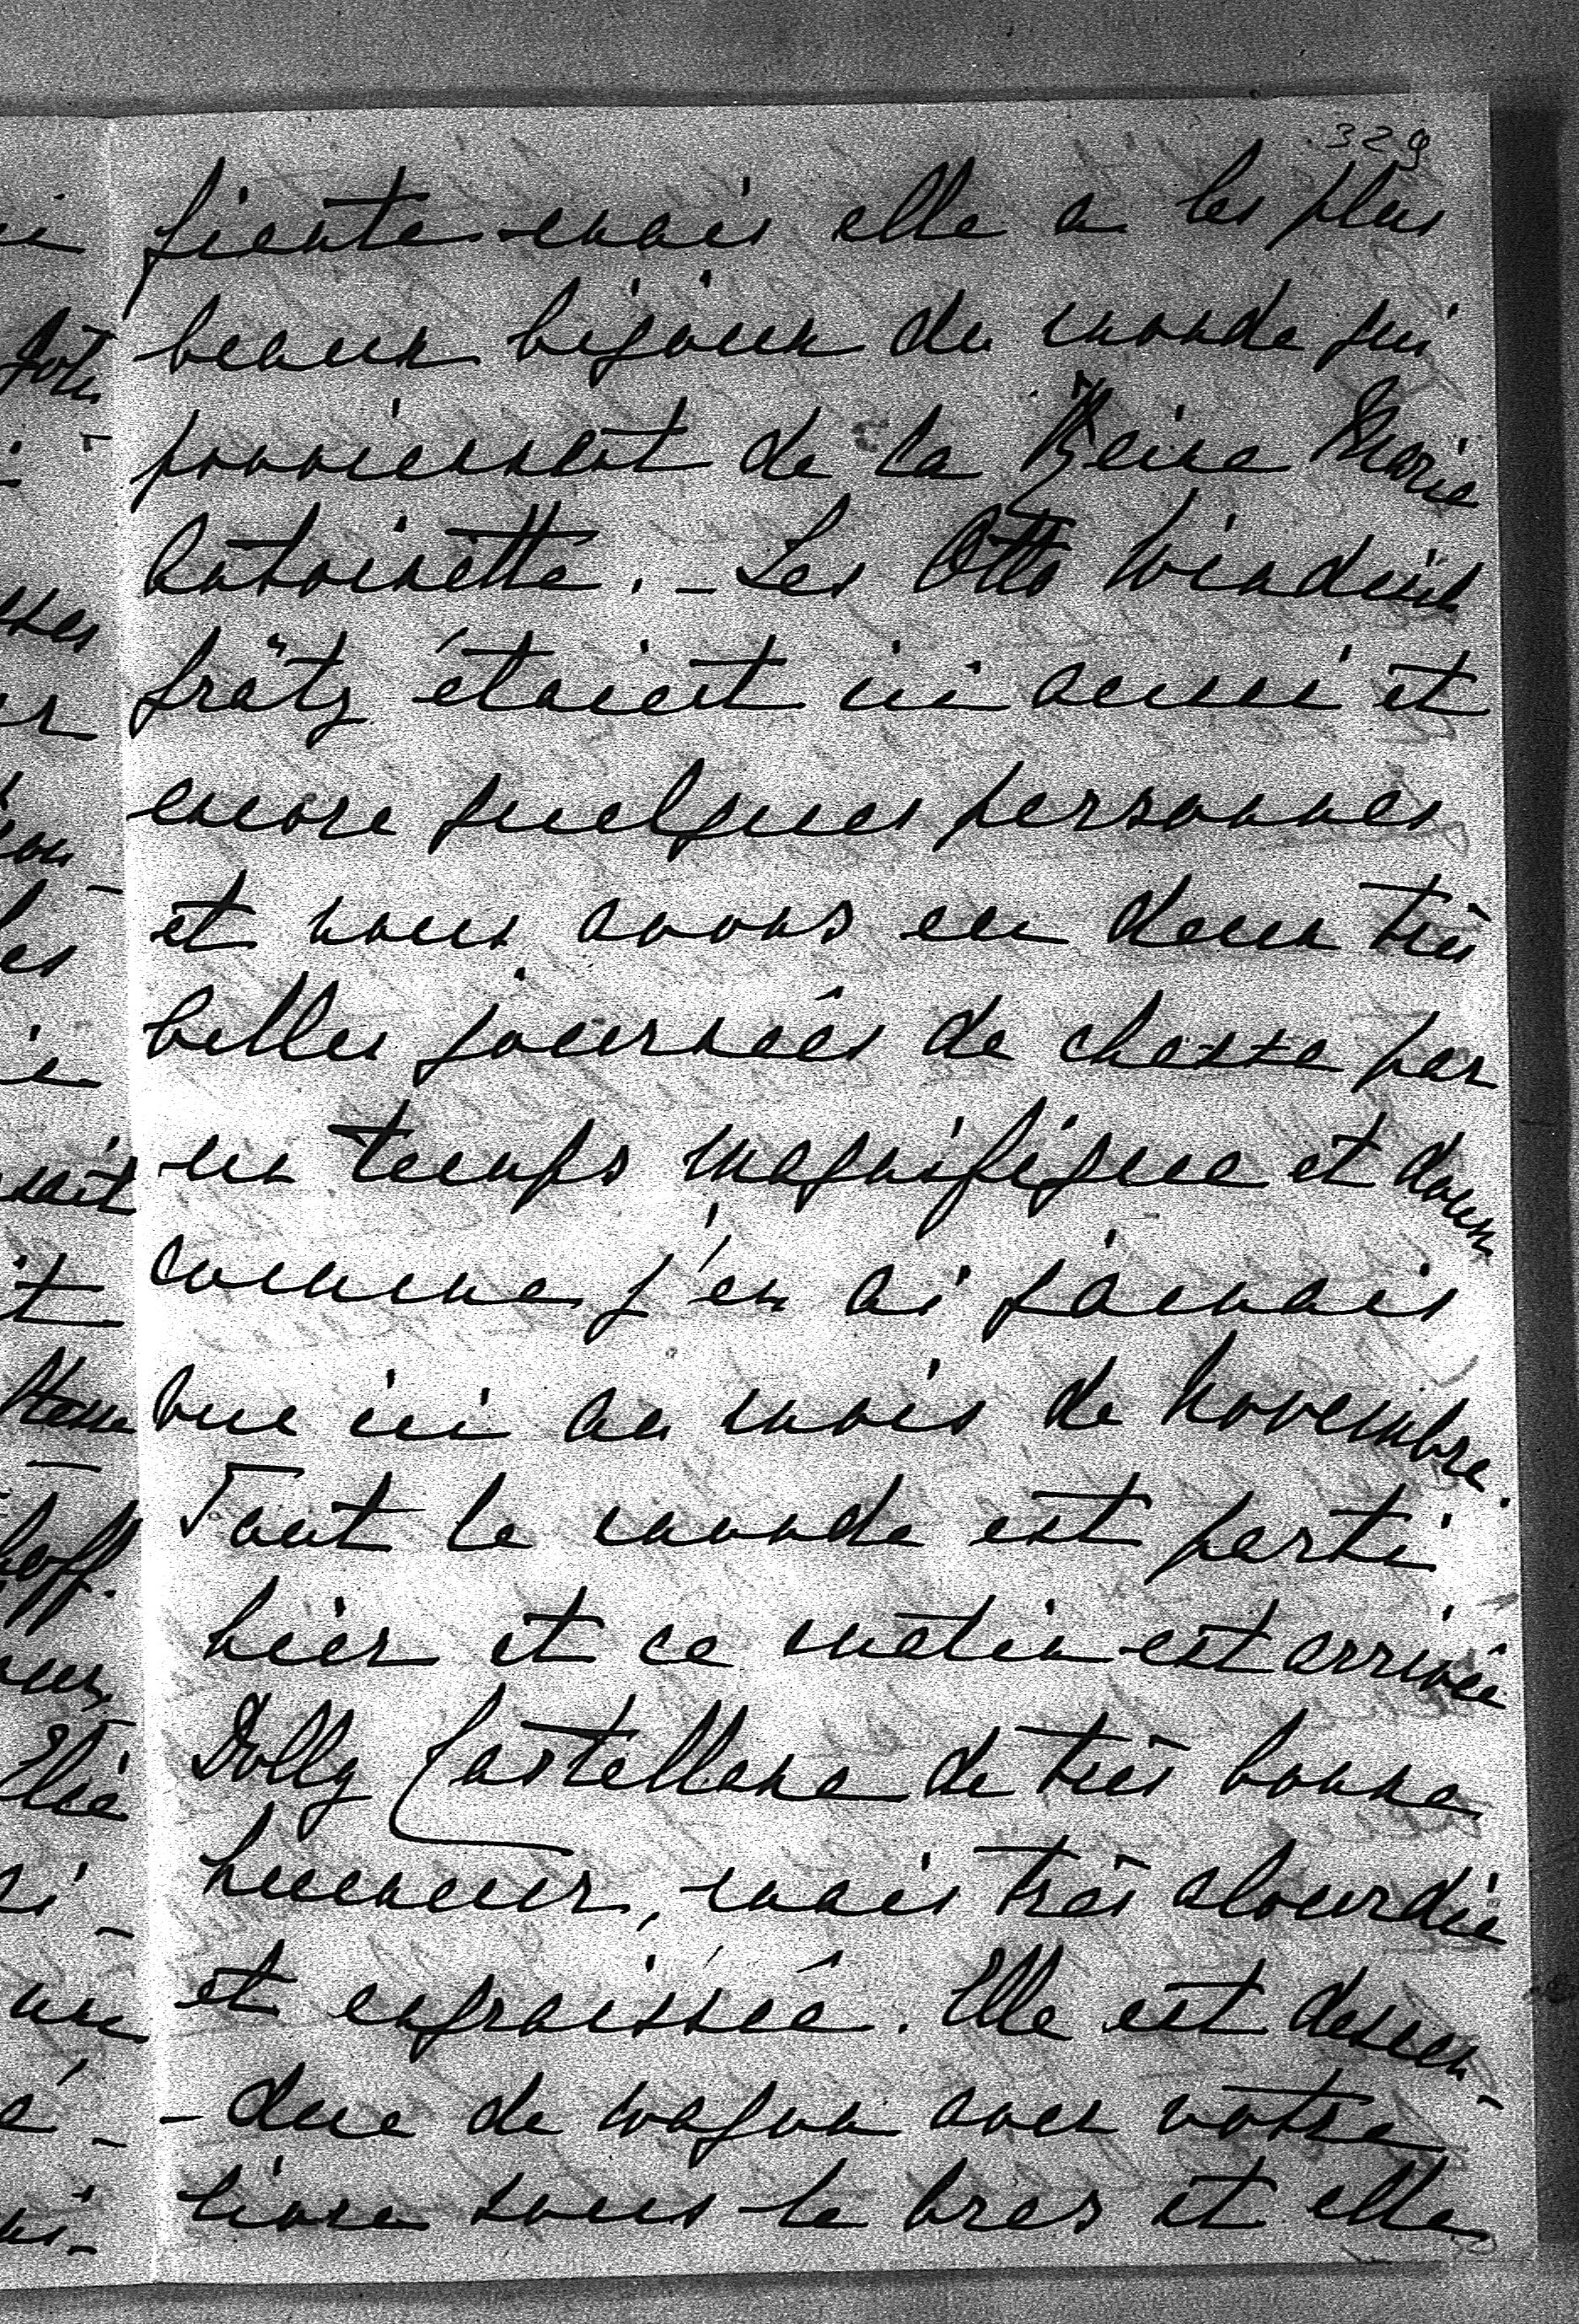 329
fiente mais elle a les plus
beaux bijoux du monde qui
proviennent de la Reine Marie
Antoinette. _ Les Otto Windisch
frätz étaient ici aussi et
encore quelques personnes
et nous avons eu deux très
belles journées de chasse par
un temps magnifique et doux
comme j'en ai jamais
vue ici au mois de Novembre.
Tout le monde est parti
hier et ce matin est arrivée
Dolly Castellane de très bonne
humeur, mais très alourdie
et engraissée. Elle est descen-
-due de wagon avec votre
livre sous le bras et elle